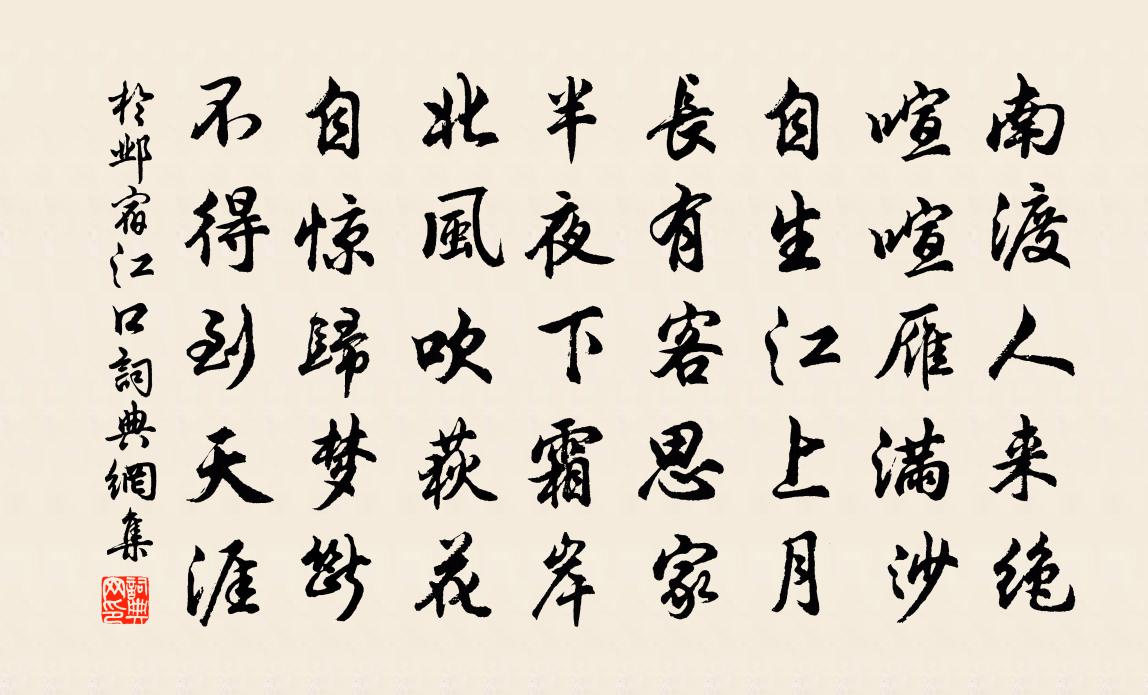 南渡人来绝
喧喧雁满沙
自生江上月
長有客思家
半夜下霜岸
北風吹荻花
自惊歸梦斷
不得到天涯
於鄴宿江口詞典網集
詞典网印